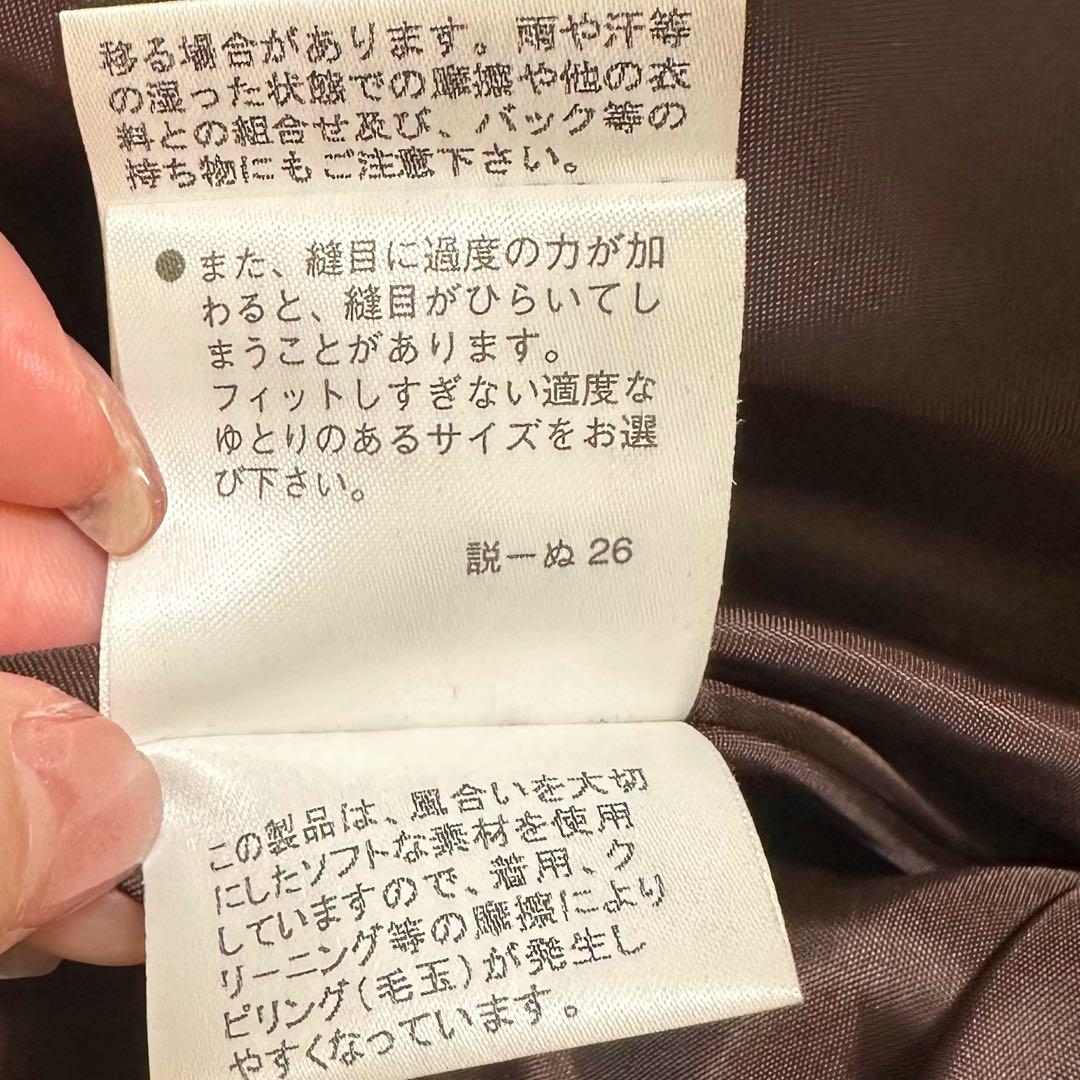 移る場合があります。雨や汗等
の湿った状態での摩擦や他の衣
料との組合せ及び、バック等の
持ち物にもご注意下さい。
●また、縫目に過度の力が加
わると、縫目がひらいてし
まうことがあります。
フィットしすぎない適度な
ゆとりのあるサイズをお選
び下さい。
説ーぬ 26
この製品は、風合いを大切
にしたソフトな素材を使用
していますので、着用、ク
リーニング等の摩擦により
ピリング(毛玉)が発生し
やすくなっています。